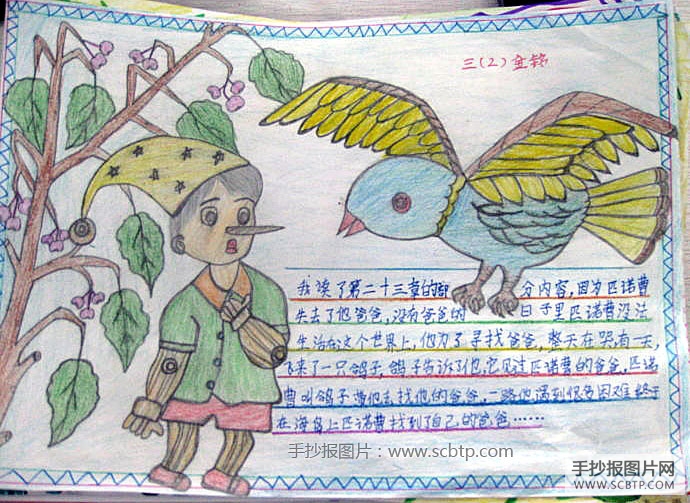 三(2) 金铭
我读了第二十三章的部分内容,因为匹诺曹
失去了他爸爸,没有爸爸的日子里匹诺曹没法
生活在这个世界上,他为了寻找爸爸,整天在哭,有一天,
飞来了一只鸽子,鸽子告诉了他,它见过匹诺曹的爸爸,匹诺
曹叫鸽子带他去找他的爸爸,一路他遇到很多困难,终于
在海岛上匹诺曹找到了自己的爸爸……
手抄报图片:www.scbtp.com
手抄报图片网
WWW.SCBTP.COM